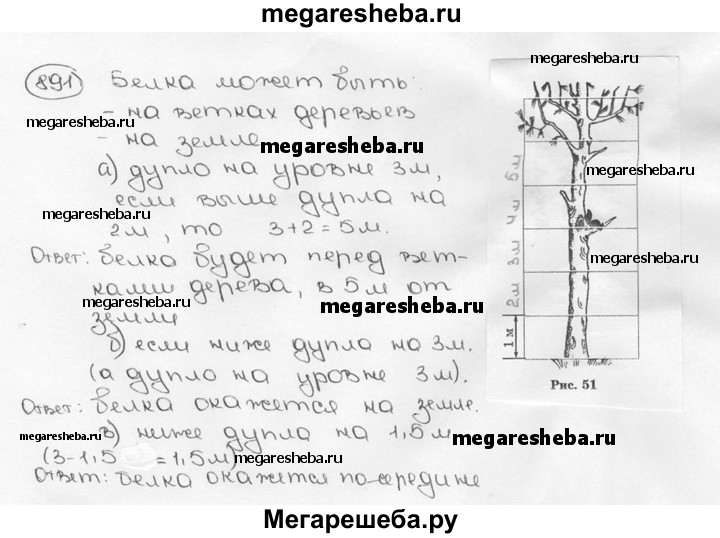 megaresheba.ru
891 Белка может быть:
megaresheba.ru
- на ветках деревьев
megaresheba.ru
- на земле
megaresheba.ru
а) дупло на уровне 3м,
megaresheba.ru
если выше дупла на
megaresheba.ru
2м, то 3+2=5м.
Ответ: белка будет перед вет-
megaresheba.ru
ками дерева, в 5м от
megaresheba.ru
megaresheba.ru
земли
б) если ниже дупла на 3м.
(а дупло на уровне 3м).
Ответ: белка окажется на земле.
megaresheba.ru
в) ниже дупла на 1,5м
megaresheba.ru
(3-1,5 =1,5м)
megaresheba.ru
Ответ: белка окажется по-середине
5 м
4 м
3 м
2 м
1 м
Рис. 51
Мегарешеба.ру